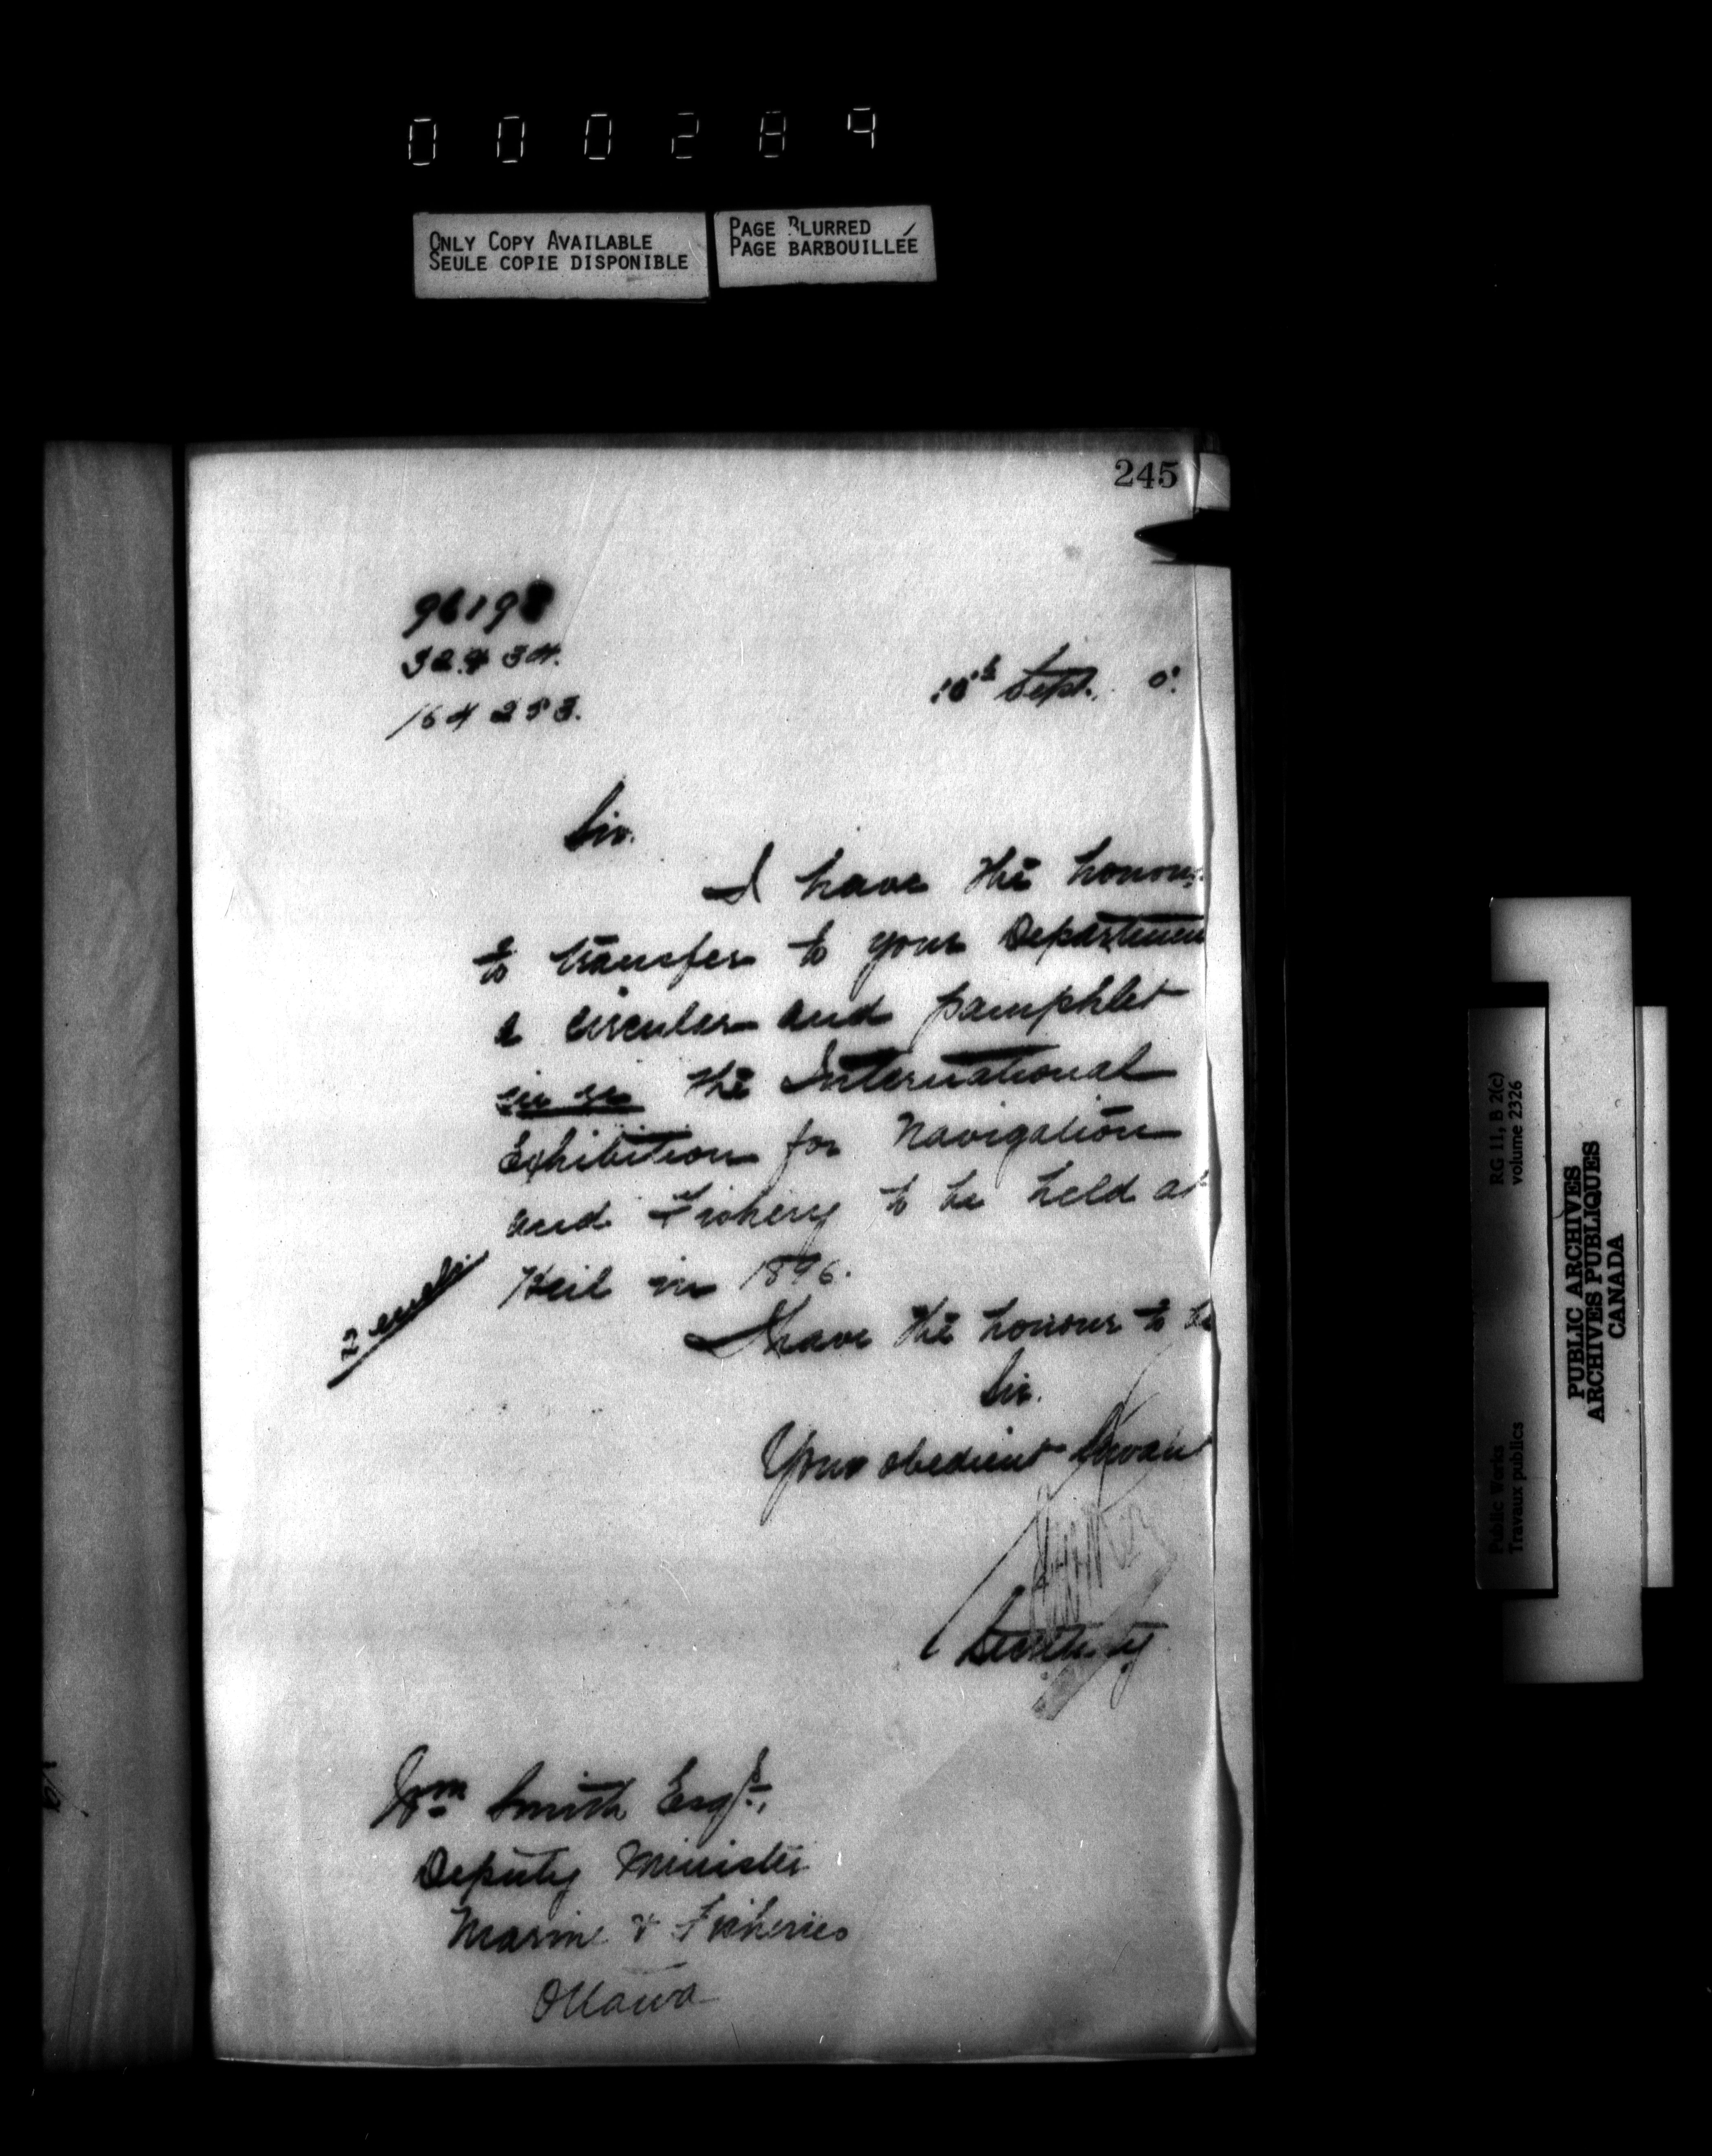 000289
ONLY COPY AVAILABLE
SEULE COPIE DISPONIBLE
PAGE BLURRED
PAGE BARBOUILLÉE
245
96198
32434.
164253.
10th Sept. 5.
Sir.
I have the honour
to transfer to your Departmen
a circular and pamphlet
in re the International
Exhibition for Navigation
and Fishery to be held at
Keil in 1896.
2 encls.
I have the honour to be
Sir.
Your obedient Servant
Secretary
Wm Smith Esqr.,
Deputy Minister
Marine & Fisheries
Ottawa
RG 11, B 2(c)
volume 2326
Public Works
Travaux publics
PUBLIC ARCHIVES
ARCHIVES PUBLIQUES
CANADA